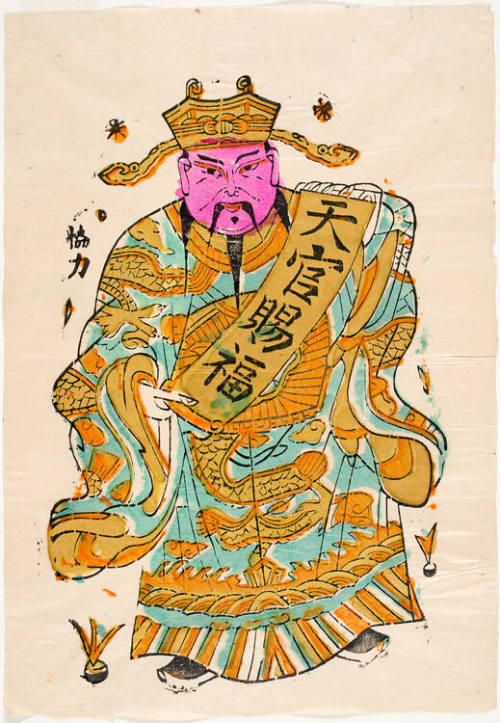 天官賜福
協力